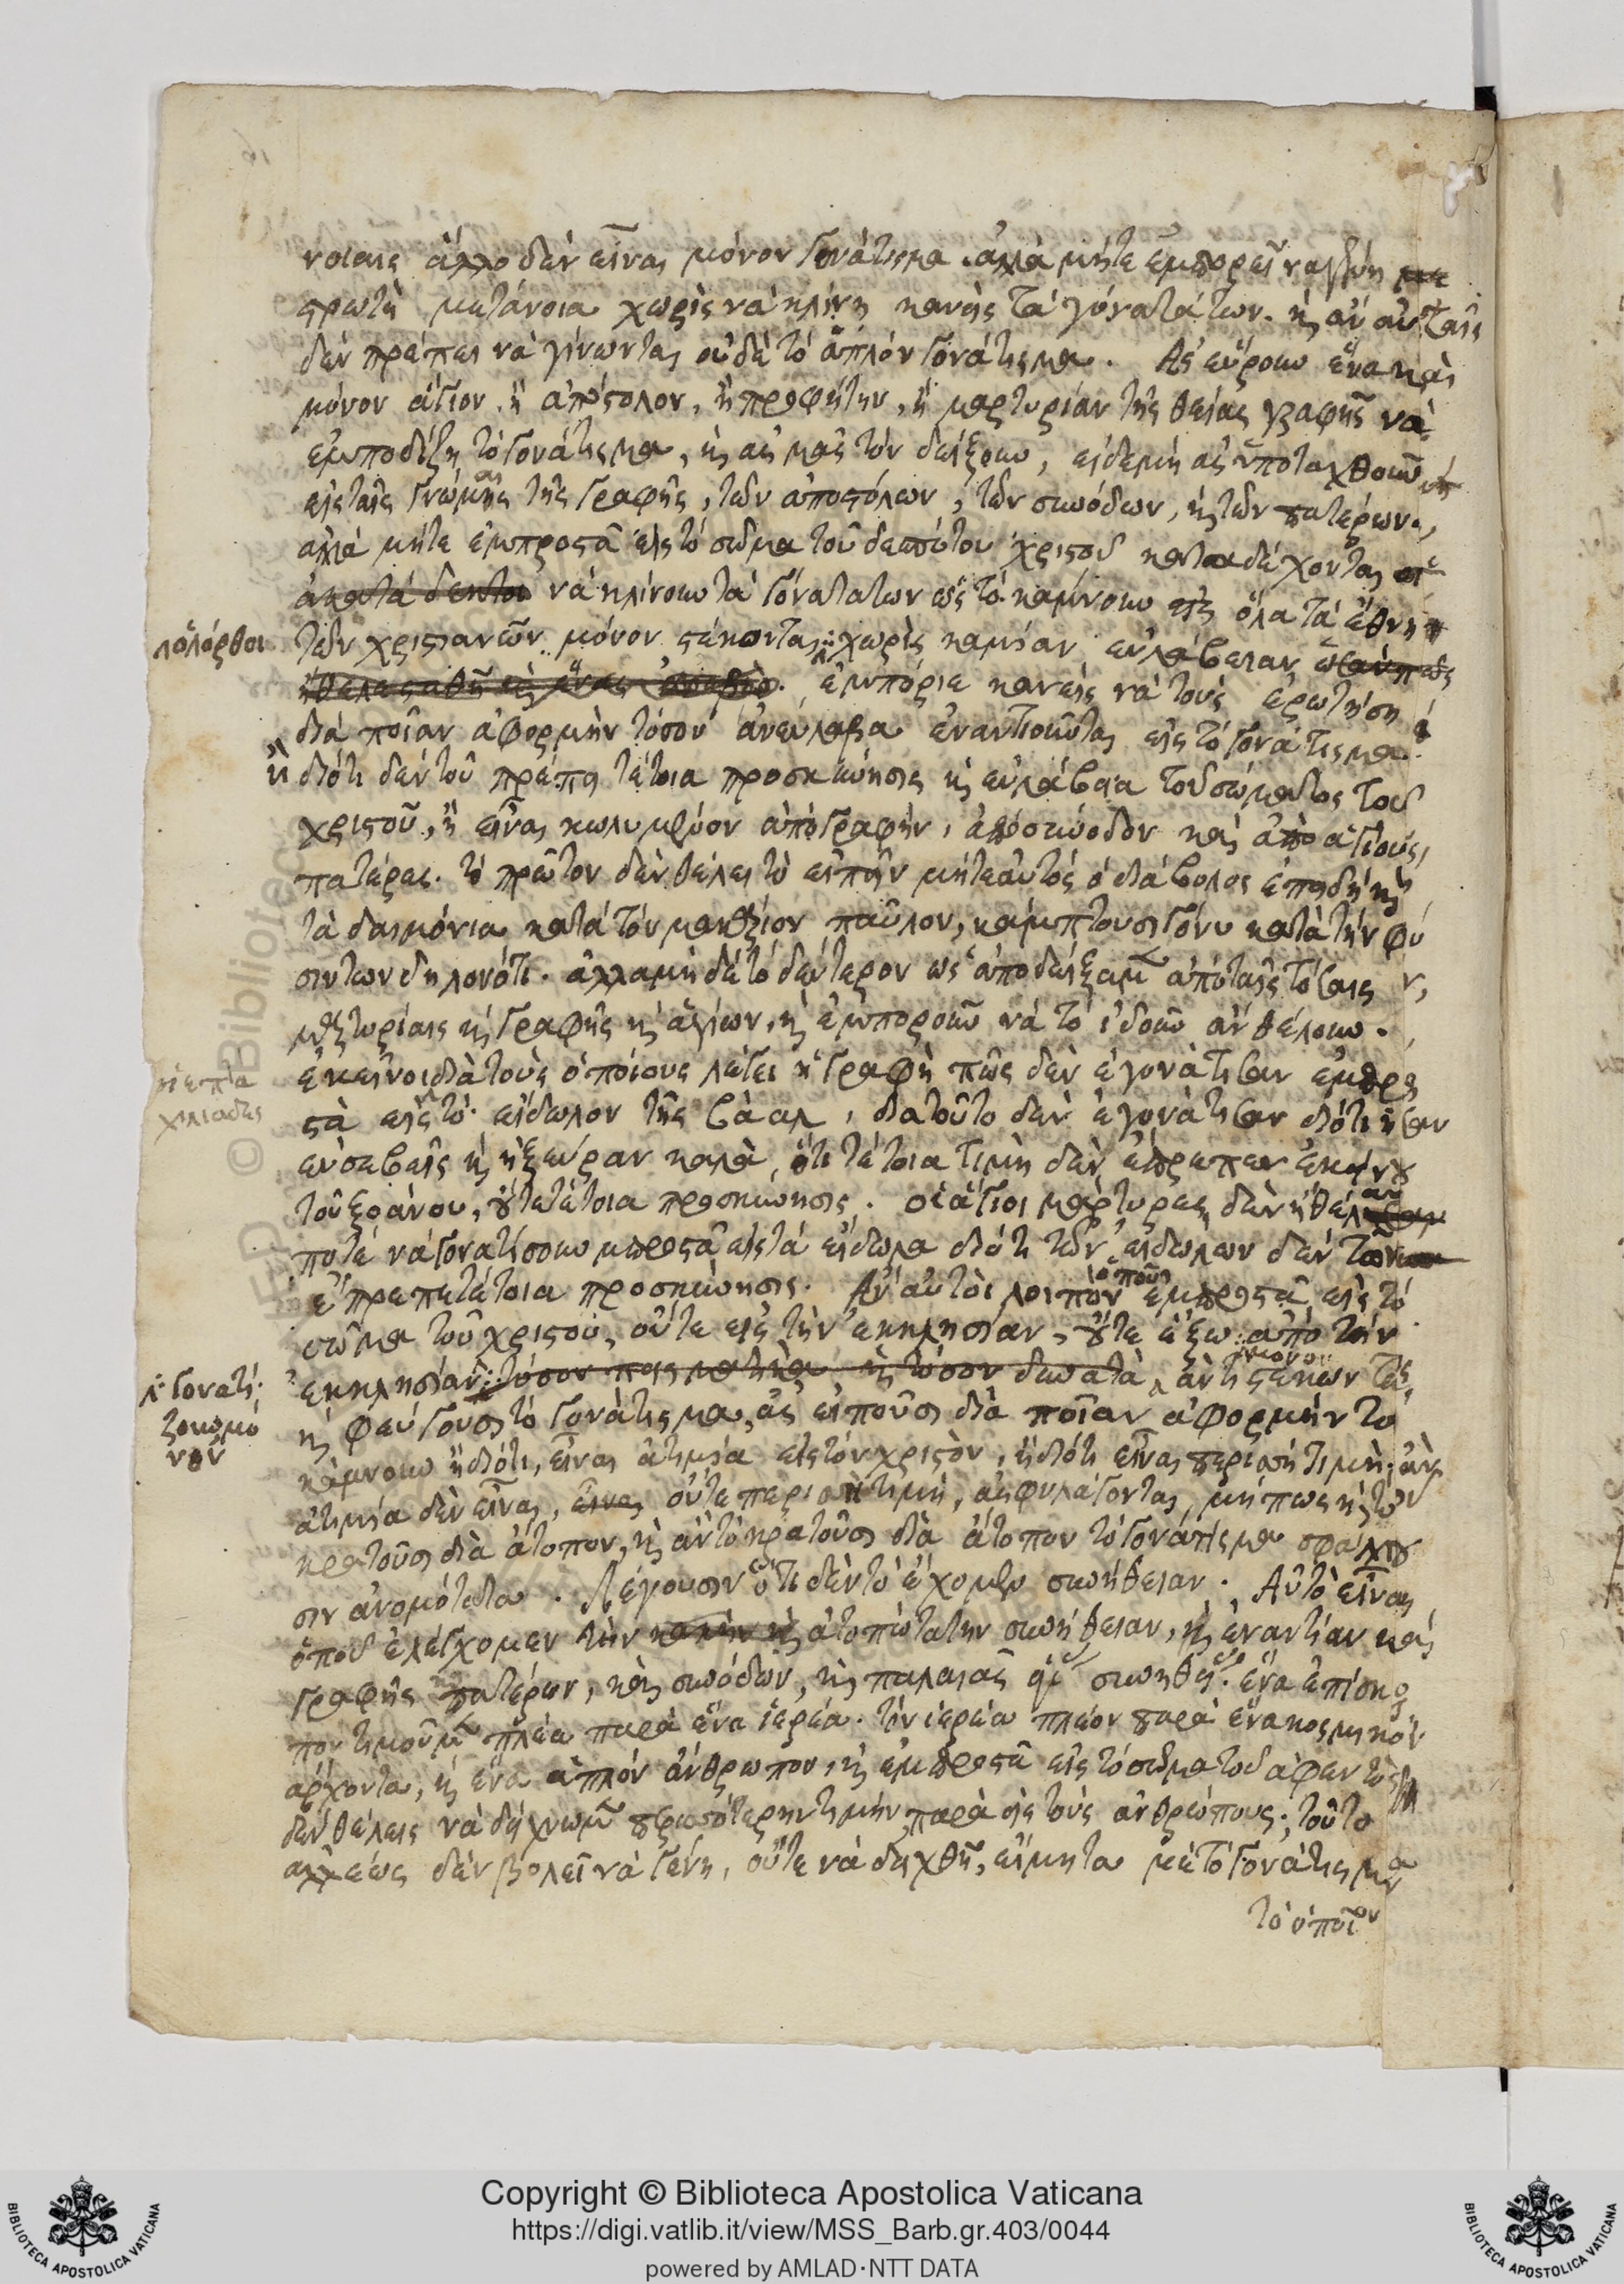 νοιαις ἄλλο δὲν εἶναι μόνον γονάτισμα. ἀλλὰ μήτε ἐμπορεῖ να γένη
στρωτὴ μετάνοια χωρὶς νὰ κλίνη κανεὶς τὰ γόνατά των. κὶ ἂν αὐταῖς
δὲν πρέπει νὰ γίνωνται οὐδὲ τὸ ἁπλὸν γονάτισμα. Ἂς εὕρουν ἕνα καὶ
μόνον ἅγιον, ἢ ἀπόστολον, ἢ προφήτην, ἢ μαρτυρίαν τῆς θείας γραφῆς νὰ
ἐμποδίζη τὸ γονάτισμα, κὶ ἂς μᾶς τὸν δείξουν, εἰδεμὴ ἂς ὑποταχθοῦν
εἰς ταῖς γνώμαις τῆς γραφῆς, τῶν ἀποστόλων, τῶν συνόδων, κὶ τῶν πατέρων.
ἀλλὰ μήτε ἐμπροστὰ εἰς τὸ σῶμα τοῦ δεσπότου χριστοῦ καταδέχονται
νὰ κλίνουν τὰ γόνατά των ὡς τὸ κάμνουν ὅλα τὰ ἔθνη
λολόρθοι
τῶν χριστιανῶν. μόνον στέκονται χωρὶς καμίαν εὐλάβειαν
ἐμπόριε κανεὶς νὰ τοὺς ἐρωτήση
διὰ ποῖαν ἀφορμὴν τόσον ἀνεύλαβα ἐναντιοῦνται εἰς τὸ γονάτισμα
ἢ διότι δὲν τοῦ πρέπει τέτοια προσκύνησις κὶ εὐλάβεια τοῦ σώματος τοῦ
χριστοῦ, ἢ εἶναι κωλυμένον ἀπὸ γραφὴν, ἀπὸ σύνοδον καὶ ἀπὸ ἁγίους
πατέρας. τὸ πρῶτον δὲν θέλει τὸ εἰπῆν μήτε αὐτὸς ὁ διάβολος ἐπειδὴ κὶ
τὰ δαιμόνια κατὰ τὸν μακάριον παῦλον, κάμπτουσι γόνυ κατὰ τὴν φύ
σιν των δηλονότι. ἀλλὰ μηδὲ τὸ δεύτερον ὡς ἀποδείξαμεν ἀπὸ ταῖς τόσαις
μαρτυρίαις κὶ γραφῆς κὶ ἁγίων, κὶ ἐμποροῦν νὰ τὸ ἰδοῦν ἂν θέλουν.
ἡ ἑπτὰ
χιλιάδες
ἐκεῖνοι διὰ τοὺς ὁποίους λέγει ἡ γραφὴ πῶς δὲν ἐγονάτισαν ἐμπρο
στὰ εἰς τὸ εἴδωλον τῆς βάαλ, διατοῦτο δὲν ἐγονάτισαν διότι ἦσαν
εὐσεβεῖς κὶ ἤξευραν καλὰ, ὅτι τέτοια τιμὴ δὲν ἔπρεπεν ἐκείνου
τοῦ ξοάνου, οὔτε τέτοια προσκύνησις. οἱ ἅγιοι μάρτυρες δὲν ἤθελαν
ποτὲ νὰ γονατίσουν μπροστὰ εἰς τὰ εἴδωλα διότι τῶν εἰδώλων δὲν
ἔπρεπε τέτοια προσκύνησις. Ἂν αὐτοὶ λοιπὸν ὁποῦ ἐμπροστὰ εἰς τὸ
σῶμα τοῦ χριστοῦ, οὔτε εἰς τὴν ἐκκλησίαν, οὔτε ἔξω ἀπὸ τὴν
ἐκκλησίαν
κὶ φεύγουσι τὸ γονάτισμα, ἂς εἰποῦσι διὰ ποῖαν ἀφορμὴν τὸ
κάμνουν ἢ διότι, εἶναι ἀτιμία εἰς τὸν χριστὸν, ἢ διότι εἶναι περισσὴ τιμὴ, ἂν
ἀτιμία δὲν εἶναι, οὔτε περισσὴ τιμὴ, ἂς φυλάγονται, μήπως κὶ τὸν
κρατοῦσι διὰ ἄτοπον, κὶ ἂν τὸ κρατοῦσι διὰ ἄτοπον τὸ γονάτισμα σφάλλου
σιν ἀνομώτατα. Λέγουσιν ὅτι δὲν τὸ ἔχομεν συνήθειαν. Αὐτὸ εἶναι
ὁποῦ ἐλέγχομεν τὴν ἀτοπώτατην συνήθειαν, κὶ ἐναντίαν καὶ
γραφῆς πατέρων, καὶ συνόδων, κὶ παλαιᾶς ἕνα ἐπίσκο
πον τιμοῦμεν πλέα παρὰ ἕνα ἱερέα. τὸν ἱερέα πλέον παρὰ ἕνα κοσμικὸν
ἄρχοντα, κὶ ἕνα ἁπλὸν ἄνθρωπον, κὶ ἐμπροστὰ εἰς τὸ σῶμα τοῦ ἀφεντὸς
δὲν θέλεις νὰ δείχνωμεν περισσότερην τιμὴν, παρὰ εἰς τοὺς ἀνθρώπους; τοῦτο
ἀλλέως δὲν βολεῖ νὰ γένη, οὔτε νὰ δειχθῆ, εἴμητα μὲ τὸ γονάτισμα
τὸ ὁποῖον
Copyright © Biblioteca Apostolica Vaticana
https://digi.vatlib.it/view/MSS_Barb.gr.403/0044
powered by AMLAD·NTT DATA
BIBLIOTECA APOSTOLICA VATICANA
BIBLIOTECA APOSTOLICA VATICANA